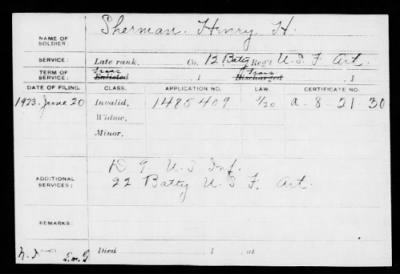 NAME OF SOLDIER: Sherman, Henry H.
SERVICE: Late rank, Co. 12 Batty Reg't U.S.F. Art.
TERM OF SERVICE: Enlisted , 1 Discharged , 1
DATE OF FILING. CLASS. APPLICATION NO. LAW. CERTIFICATE NO.
1923. June 20 Invalid, 1485409 a-8-21 30
Widow,
Minor,
ADDITIONAL SERVICES: D 9 U.S. Inf.
22 Batty U.S.F. Art.
REMARKS:
Died , 1 , at